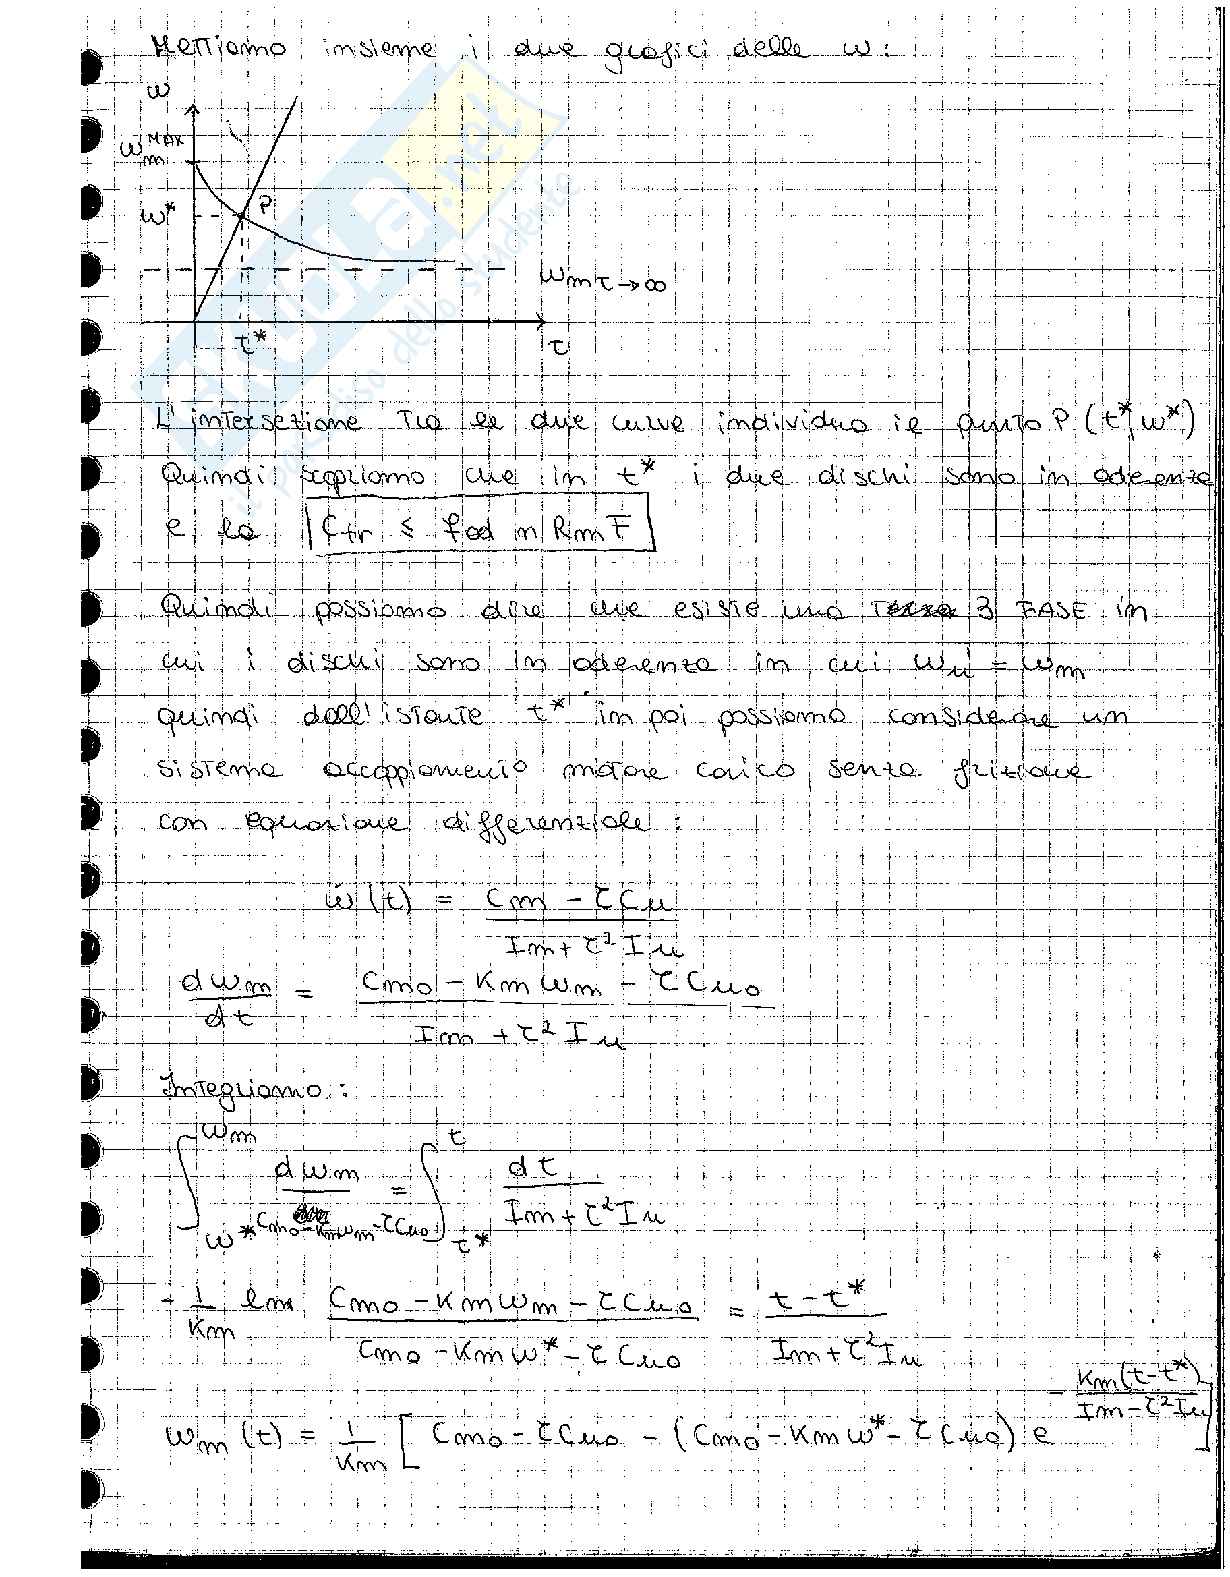 Mettiamo insieme i due grafici delle ω:
ω
ω_m^MAX
ω*
P
ω_m τ→∞
t*
τ
L'intersezione tra le due curve individua il punto P (t*, ω*)
Quindi sappiamo che in t* i due dischi sono in aderenza
e la C_fr ≤ f_ad n R_m F
Quindi possiamo dire che esiste una 3 FASE in
cui i dischi sono in aderenza in cui ω_u = ω_m
quindi dall'istante t* in poi possiamo considerare un
sistema accoppiamento motore carico senza frizione
con equazione differenziale:
ω̇(t) = (C_m - τC_u) / (I_m + τ² I_u)
dω_m/dt = (C_m0 - K_m ω_m - τC_u0) / (I_m + τ² I_u)
Integriamo:
∫_ω*^ω_m dω_m / (C_m0 - K_m ω_m - τC_u0) = ∫_t*^t dt / (I_m + τ² I_u)
- 1/K_m ln (C_m0 - K_m ω_m - τC_u0) / (C_m0 - K_m ω* - τC_u0) = (t - t*) / (I_m + τ² I_u)
ω_m(t) = 1/K_m [ C_m0 - τC_u0 - (C_m0 - K_m ω* - τC_u0) e^(- K_m(t - t*) / (I_m - τ² I_u)) ]
SKUOLA.net
il paradiso dello studente